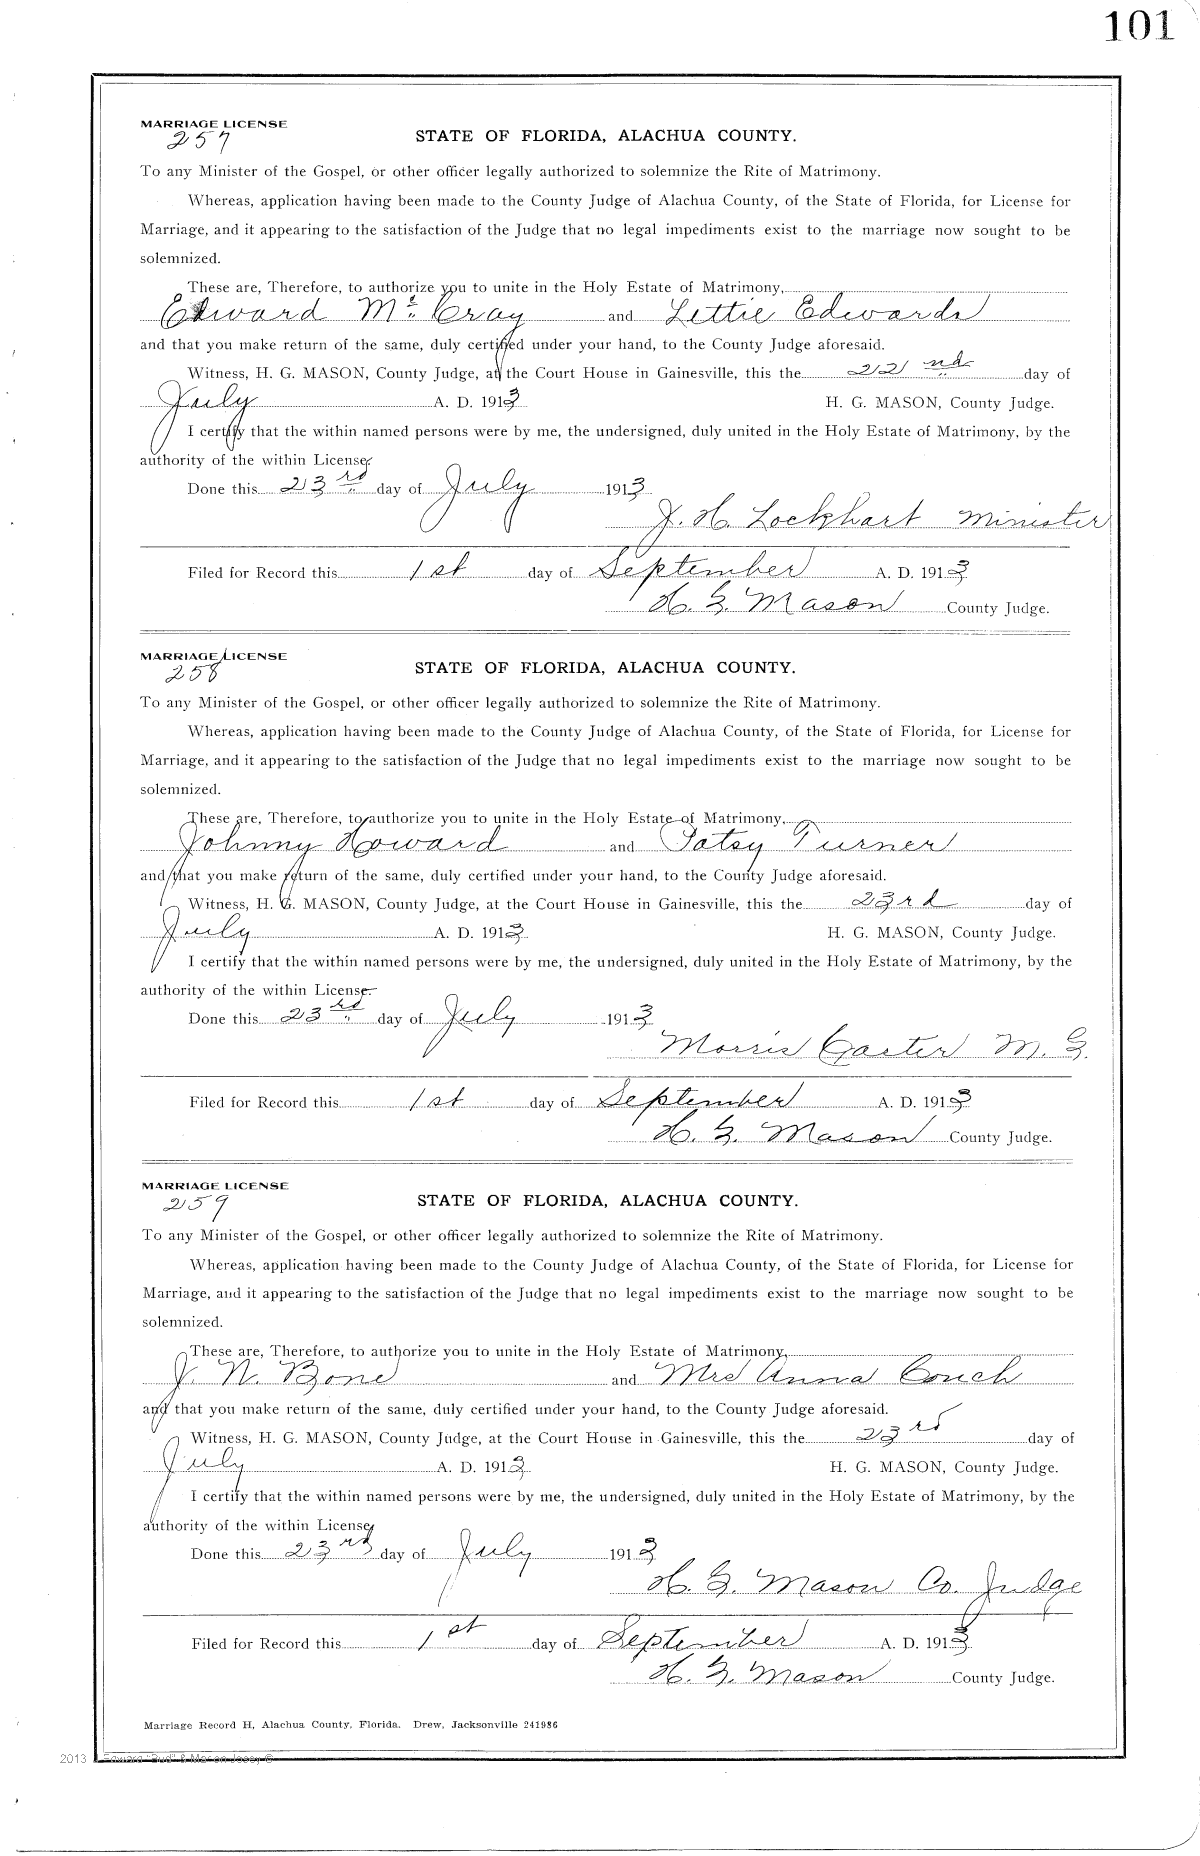 101
MARRIAGE LICENSE
257
STATE OF FLORIDA, ALACHUA COUNTY.
To any Minister of the Gospel, or other officer legally authorized to solemnize the Rite of Matrimony.
Whereas, application having been made to the County Judge of Alachua County, of the State of Florida, for License for
Marriage, and it appearing to the satisfaction of the Judge that no legal impediments exist to the marriage now sought to be
solemnized.
These are, Therefore, to authorize you to unite in the Holy Estate of Matrimony,
Edward Mc Cray and Lettie Edwards
and that you make return of the same, duly certified under your hand, to the County Judge aforesaid.
Witness, H. G. MASON, County Judge, at the Court House in Gainesville, this the 22nd day of
July A. D. 1913 H. G. MASON, County Judge.
I certify that the within named persons were by me, the undersigned, duly united in the Holy Estate of Matrimony, by the
authority of the within License.
Done this 23rd day of July 1913
J. H. Lockhart Minister
Filed for Record this 1st day of September A. D. 1913
H. G. Mason County Judge.
MARRIAGE LICENSE
258
STATE OF FLORIDA, ALACHUA COUNTY.
To any Minister of the Gospel, or other officer legally authorized to solemnize the Rite of Matrimony.
Whereas, application having been made to the County Judge of Alachua County, of the State of Florida, for License for
Marriage, and it appearing to the satisfaction of the Judge that no legal impediments exist to the marriage now sought to be
solemnized.
These are, Therefore, to authorize you to unite in the Holy Estate of Matrimony,
Johnny Howard and Patsy Turner
and that you make return of the same, duly certified under your hand, to the County Judge aforesaid.
Witness, H. G. MASON, County Judge, at the Court House in Gainesville, this the 23rd day of
July A. D. 1913 H. G. MASON, County Judge.
I certify that the within named persons were by me, the undersigned, duly united in the Holy Estate of Matrimony, by the
authority of the within License.
Done this 23rd day of July 1913
Morris Carter M. G.
Filed for Record this 1st day of September A. D. 1913
H. G. Mason County Judge.
MARRIAGE LICENSE
259
STATE OF FLORIDA, ALACHUA COUNTY.
To any Minister of the Gospel, or other officer legally authorized to solemnize the Rite of Matrimony.
Whereas, application having been made to the County Judge of Alachua County, of the State of Florida, for License for
Marriage, and it appearing to the satisfaction of the Judge that no legal impediments exist to the marriage now sought to be
solemnized.
These are, Therefore, to authorize you to unite in the Holy Estate of Matrimony,
J. N. Bone and Mrs Anna Couch
and that you make return of the same, duly certified under your hand, to the County Judge aforesaid.
Witness, H. G. MASON, County Judge, at the Court House in Gainesville, this the 23rd day of
July A. D. 1913 H. G. MASON, County Judge.
I certify that the within named persons were by me, the undersigned, duly united in the Holy Estate of Matrimony, by the
authority of the within License.
Done this 23rd day of July 1913
H. G. Mason Co. Judge
Filed for Record this 1st day of September A. D. 1913
H. G. Mason County Judge.
Marriage Record H, Alachua County, Florida. Drew, Jacksonville 241986
2013 Edward "Bud" &